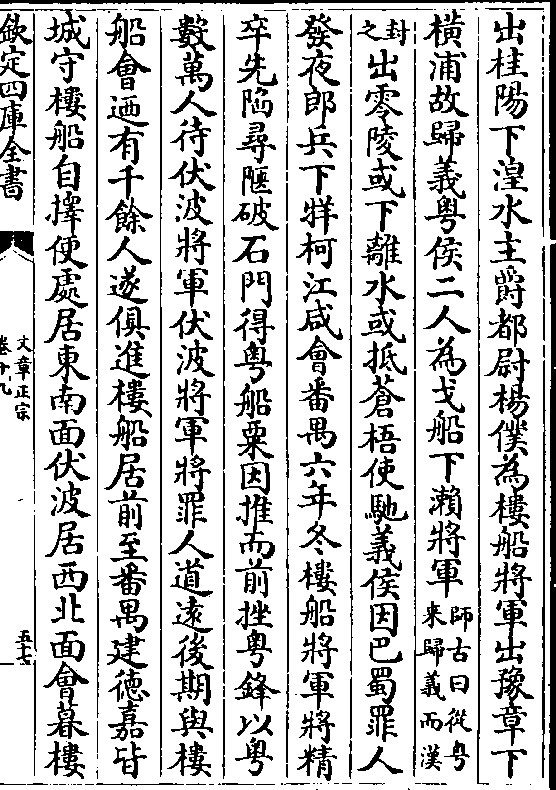 出桂陽下湟水主爵都尉楊僕為樓船將軍出豫章下
橫浦故歸義粤侯二人為戈船下瀨將軍師古曰從粤来歸義而漢
封之出零陵或下離水或抵蒼梧使馳義侯因巴蜀罪人
發夜郎兵下牂柯江咸會番禺六年冬樓船將軍將精
卒先陷尋陿破石門得粤船粟因推而前挫粤鋒以粤
數萬人待伏波將軍伏波將軍將罪人道遠後期與樓
船會廼有千餘人遂俱進樓船居前至番禺建徳嘉皆
城守樓船自擇便處居東南面伏波居西北面會暮樓
欽定四庫全書
文章正宗
卷十九
五十七